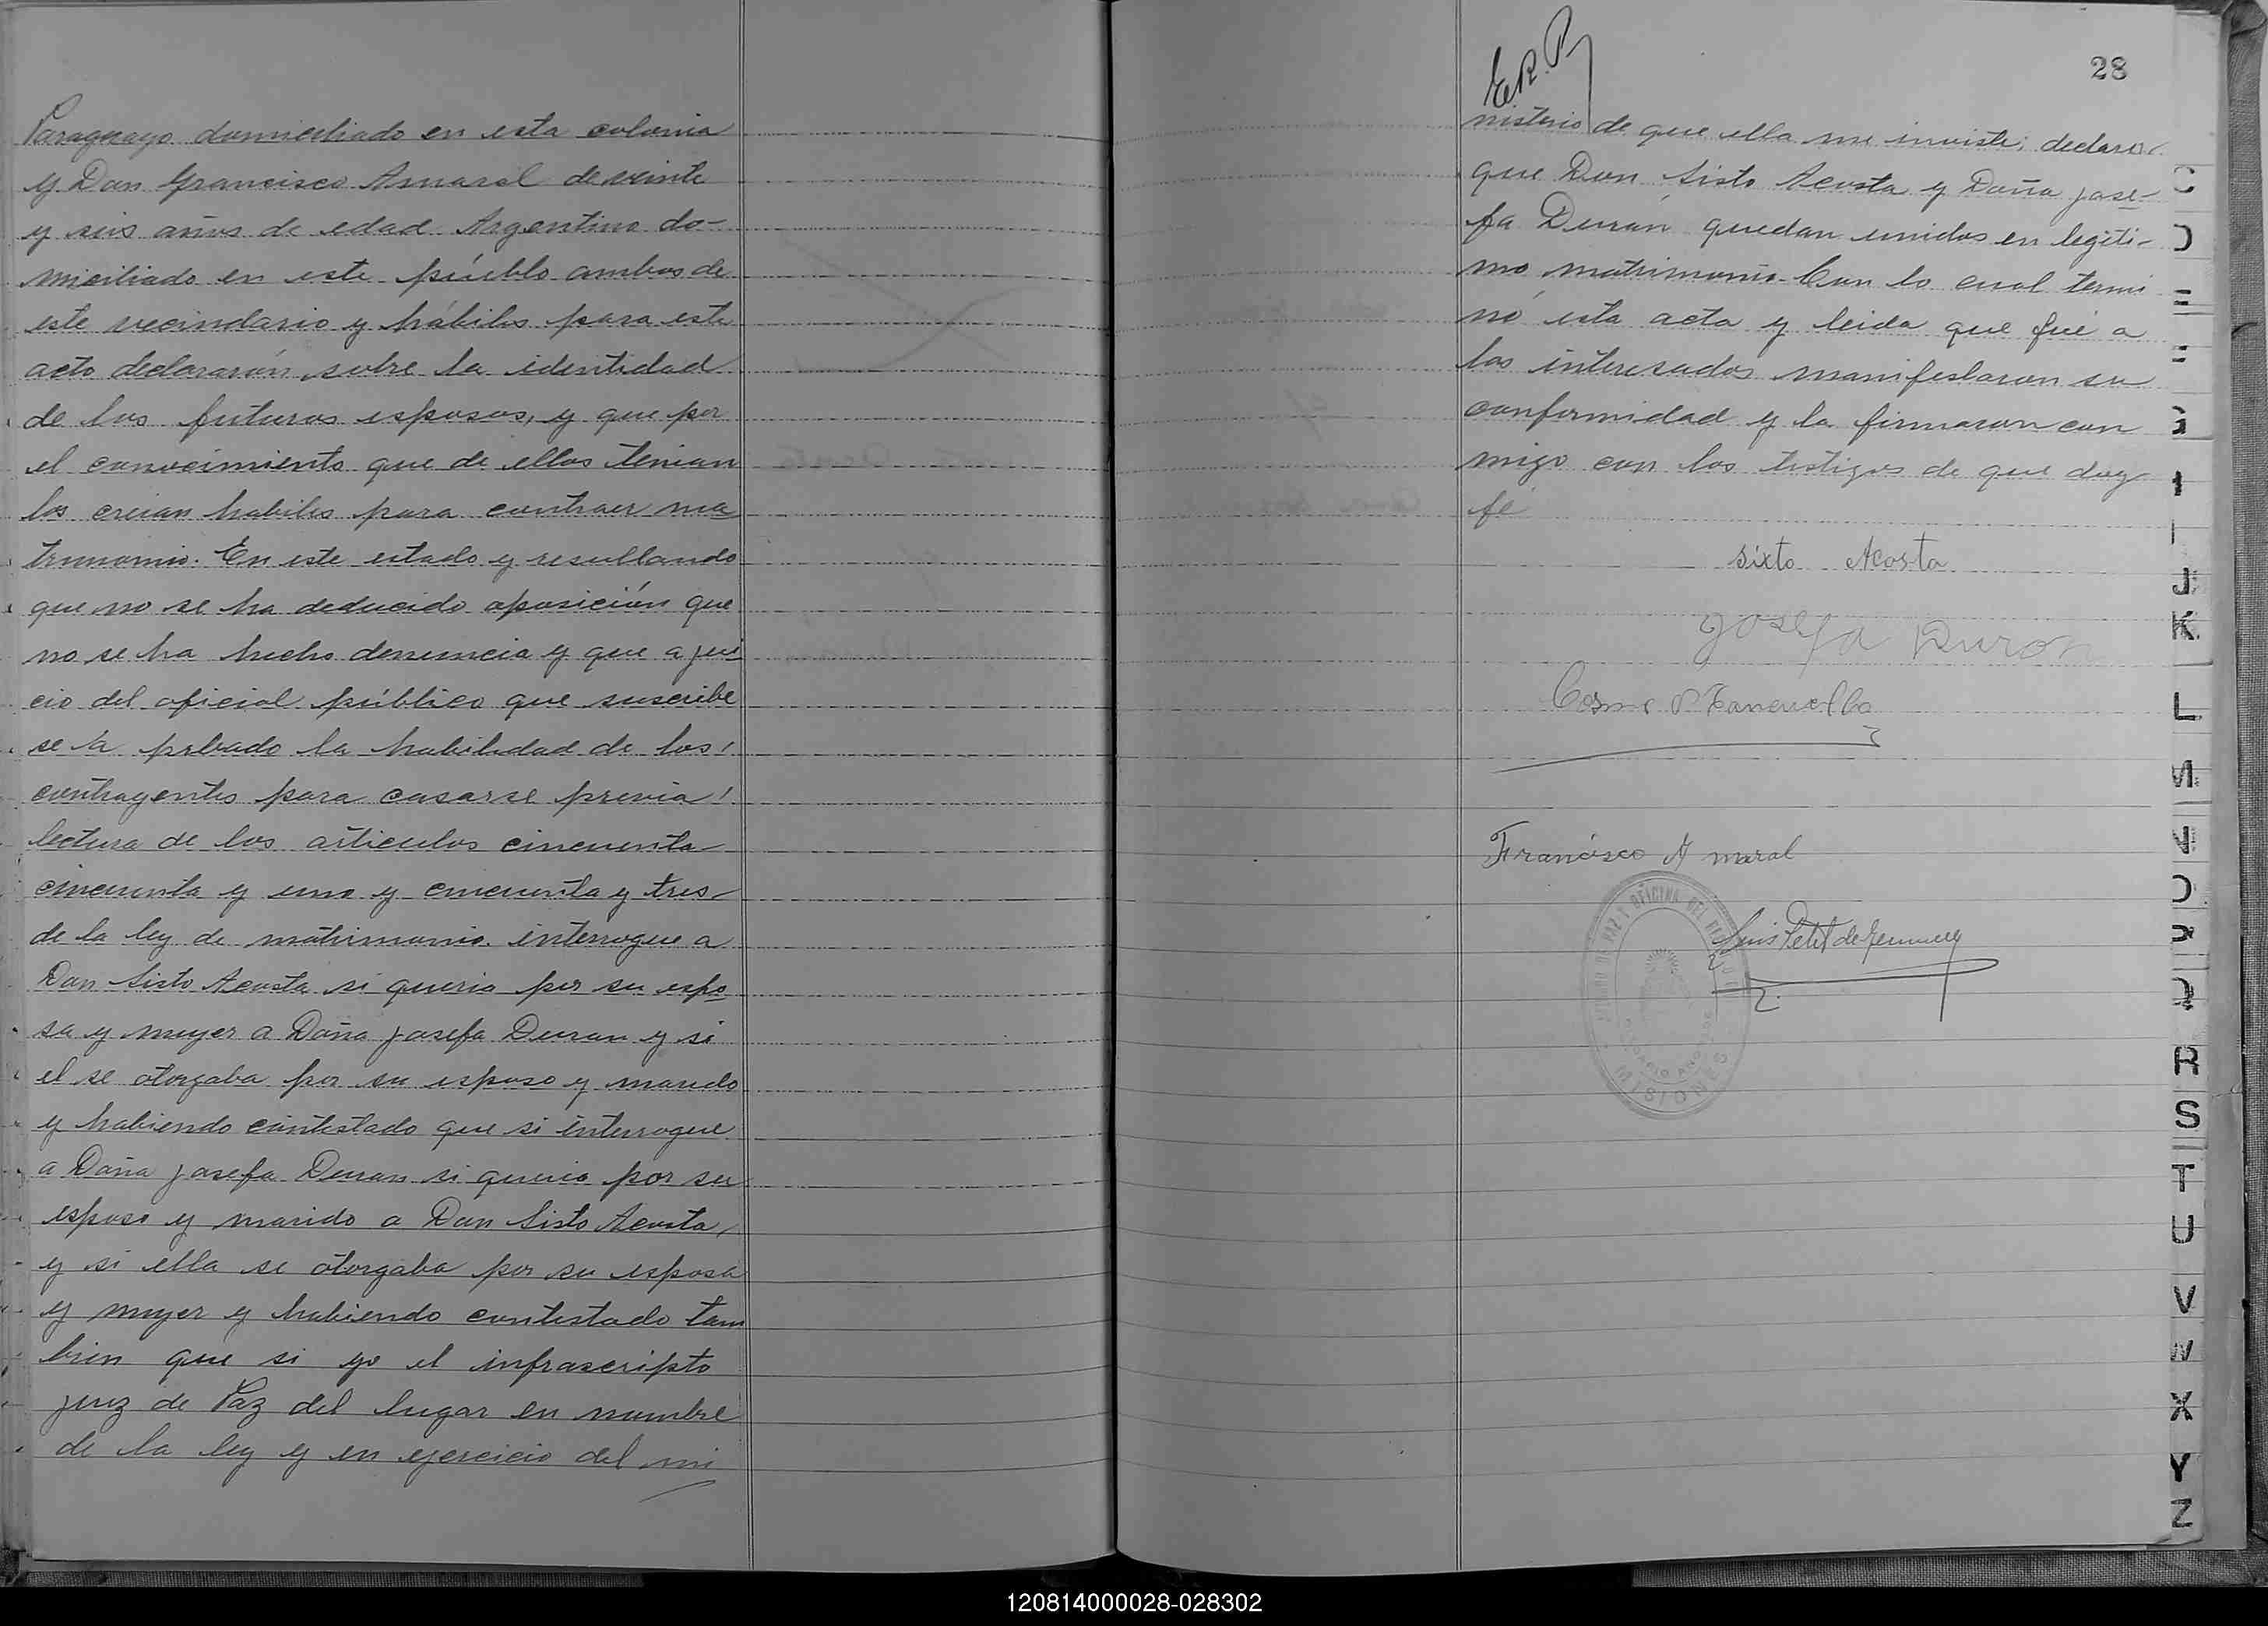 Paraguayo domiciliado en esta colonia
y Don Francisco Amaral de veinte
y seis años de edad Argentino do-
miciliado en este pueblo ambos de
este vecindario y hábiles para este
acto declararón sobre la identidad
de los futuros esposos, y que por
el conocimiento que de ellos tenian
los creian habiles para contraer ma
trimonio. En este estado y resultando
que no se ha deducido oposición que
no se ha hecho denuncia y que a jui
cio del oficial público que suscribe
se a probado la habilidad de los
contrayentes para casarse previa
lectura de los articulos cincuenta
cincuenta y uno y cincuenta y tres
de la ley de matrimonio interrogue a
Don Sisto Acosta si queria por su espo
sa y mujer a Doña Josefa Duran y si
el se otorgaba por su esposo y marido
y habiendo contestado que si interrogue
a Doña Josefa Duran si queria por su
esposo y marido a Don Sisto Acosta,
y si ella se otorgaba por su esposa
y mujer y habiendo contestado tam
bien que si yo el infrascripto
juez de Paz del lugar en nombre
de la ley y en ejercicio del mi
28
E.R.P.
nisterio de que ella me inviste; declaro
que Don Sisto Acosta y Doña Jose-
fa Durán quedan unidos en legiti-
mo matrimonio Con lo cual termi
nó esta acta y leida que fué a
los interesados manifestaron su
conformidad y la firmaron con
migo con los testigos de que doy
fé
Sixto Acosta
Josefa Duron
Cosme
Francisco Amaral
Luis Petit de
OFICINA DEL
MISIONES
C
D
E
G
I
J
K
L
M
N
O
P
Q
R
S
T
U
V
W
X
Y
Z
120814000028-028302